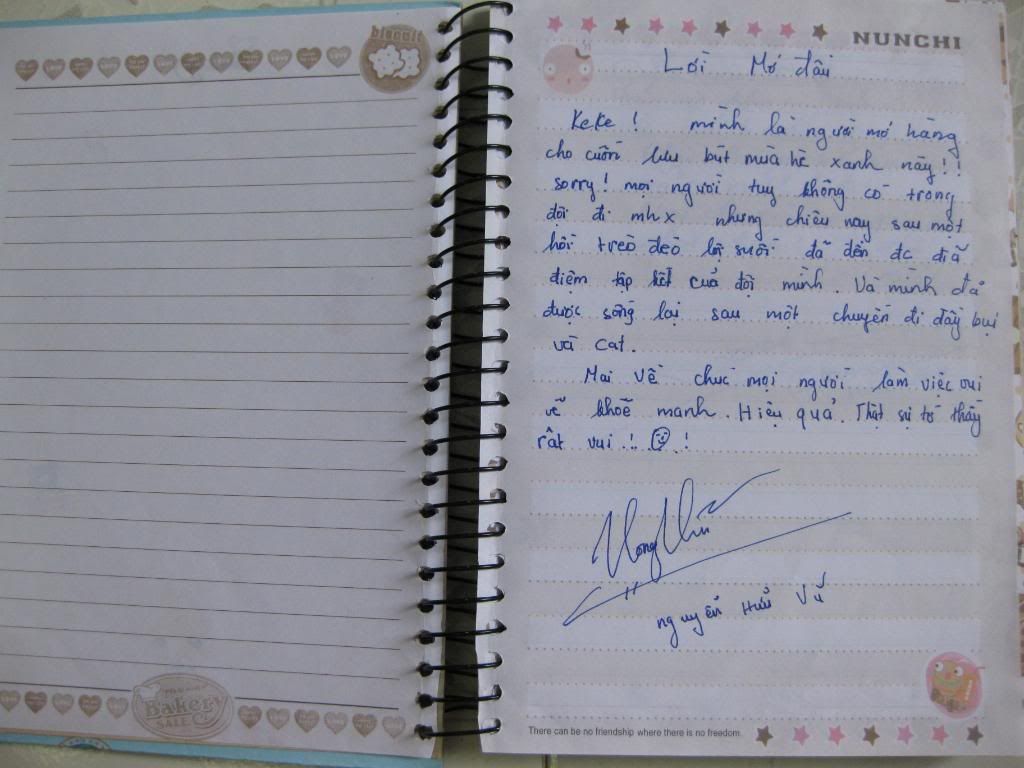 biscuit
NUNCHI
Lời Mở đầu
KeKe ! mình là người mở hàng
cho cuốn lưu bút mùa hè xanh này !!
sorry! mọi người tuy không có trong
đội đi mhx nhưng chiều nay sau một
hồi trèo đèo lội suối đã đến đc địa
điểm tập kết của đội mình. Và mình đã
được sống lại sau một chuyến đi đầy bụi
và cát.
Mai về chúc mọi người làm việc vui
vẽ khoẽ manh. Hiệu quả. Thật sự tớ thấy
rất vui !. !
nguyễn Hữu Vũ
Bakery
SALE
There can be no friendship where there is no freedom.